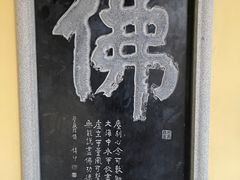 佛
塵刹心念可數知
大海中水可飲盡
虛空可量風可繫
無能說盡佛功德